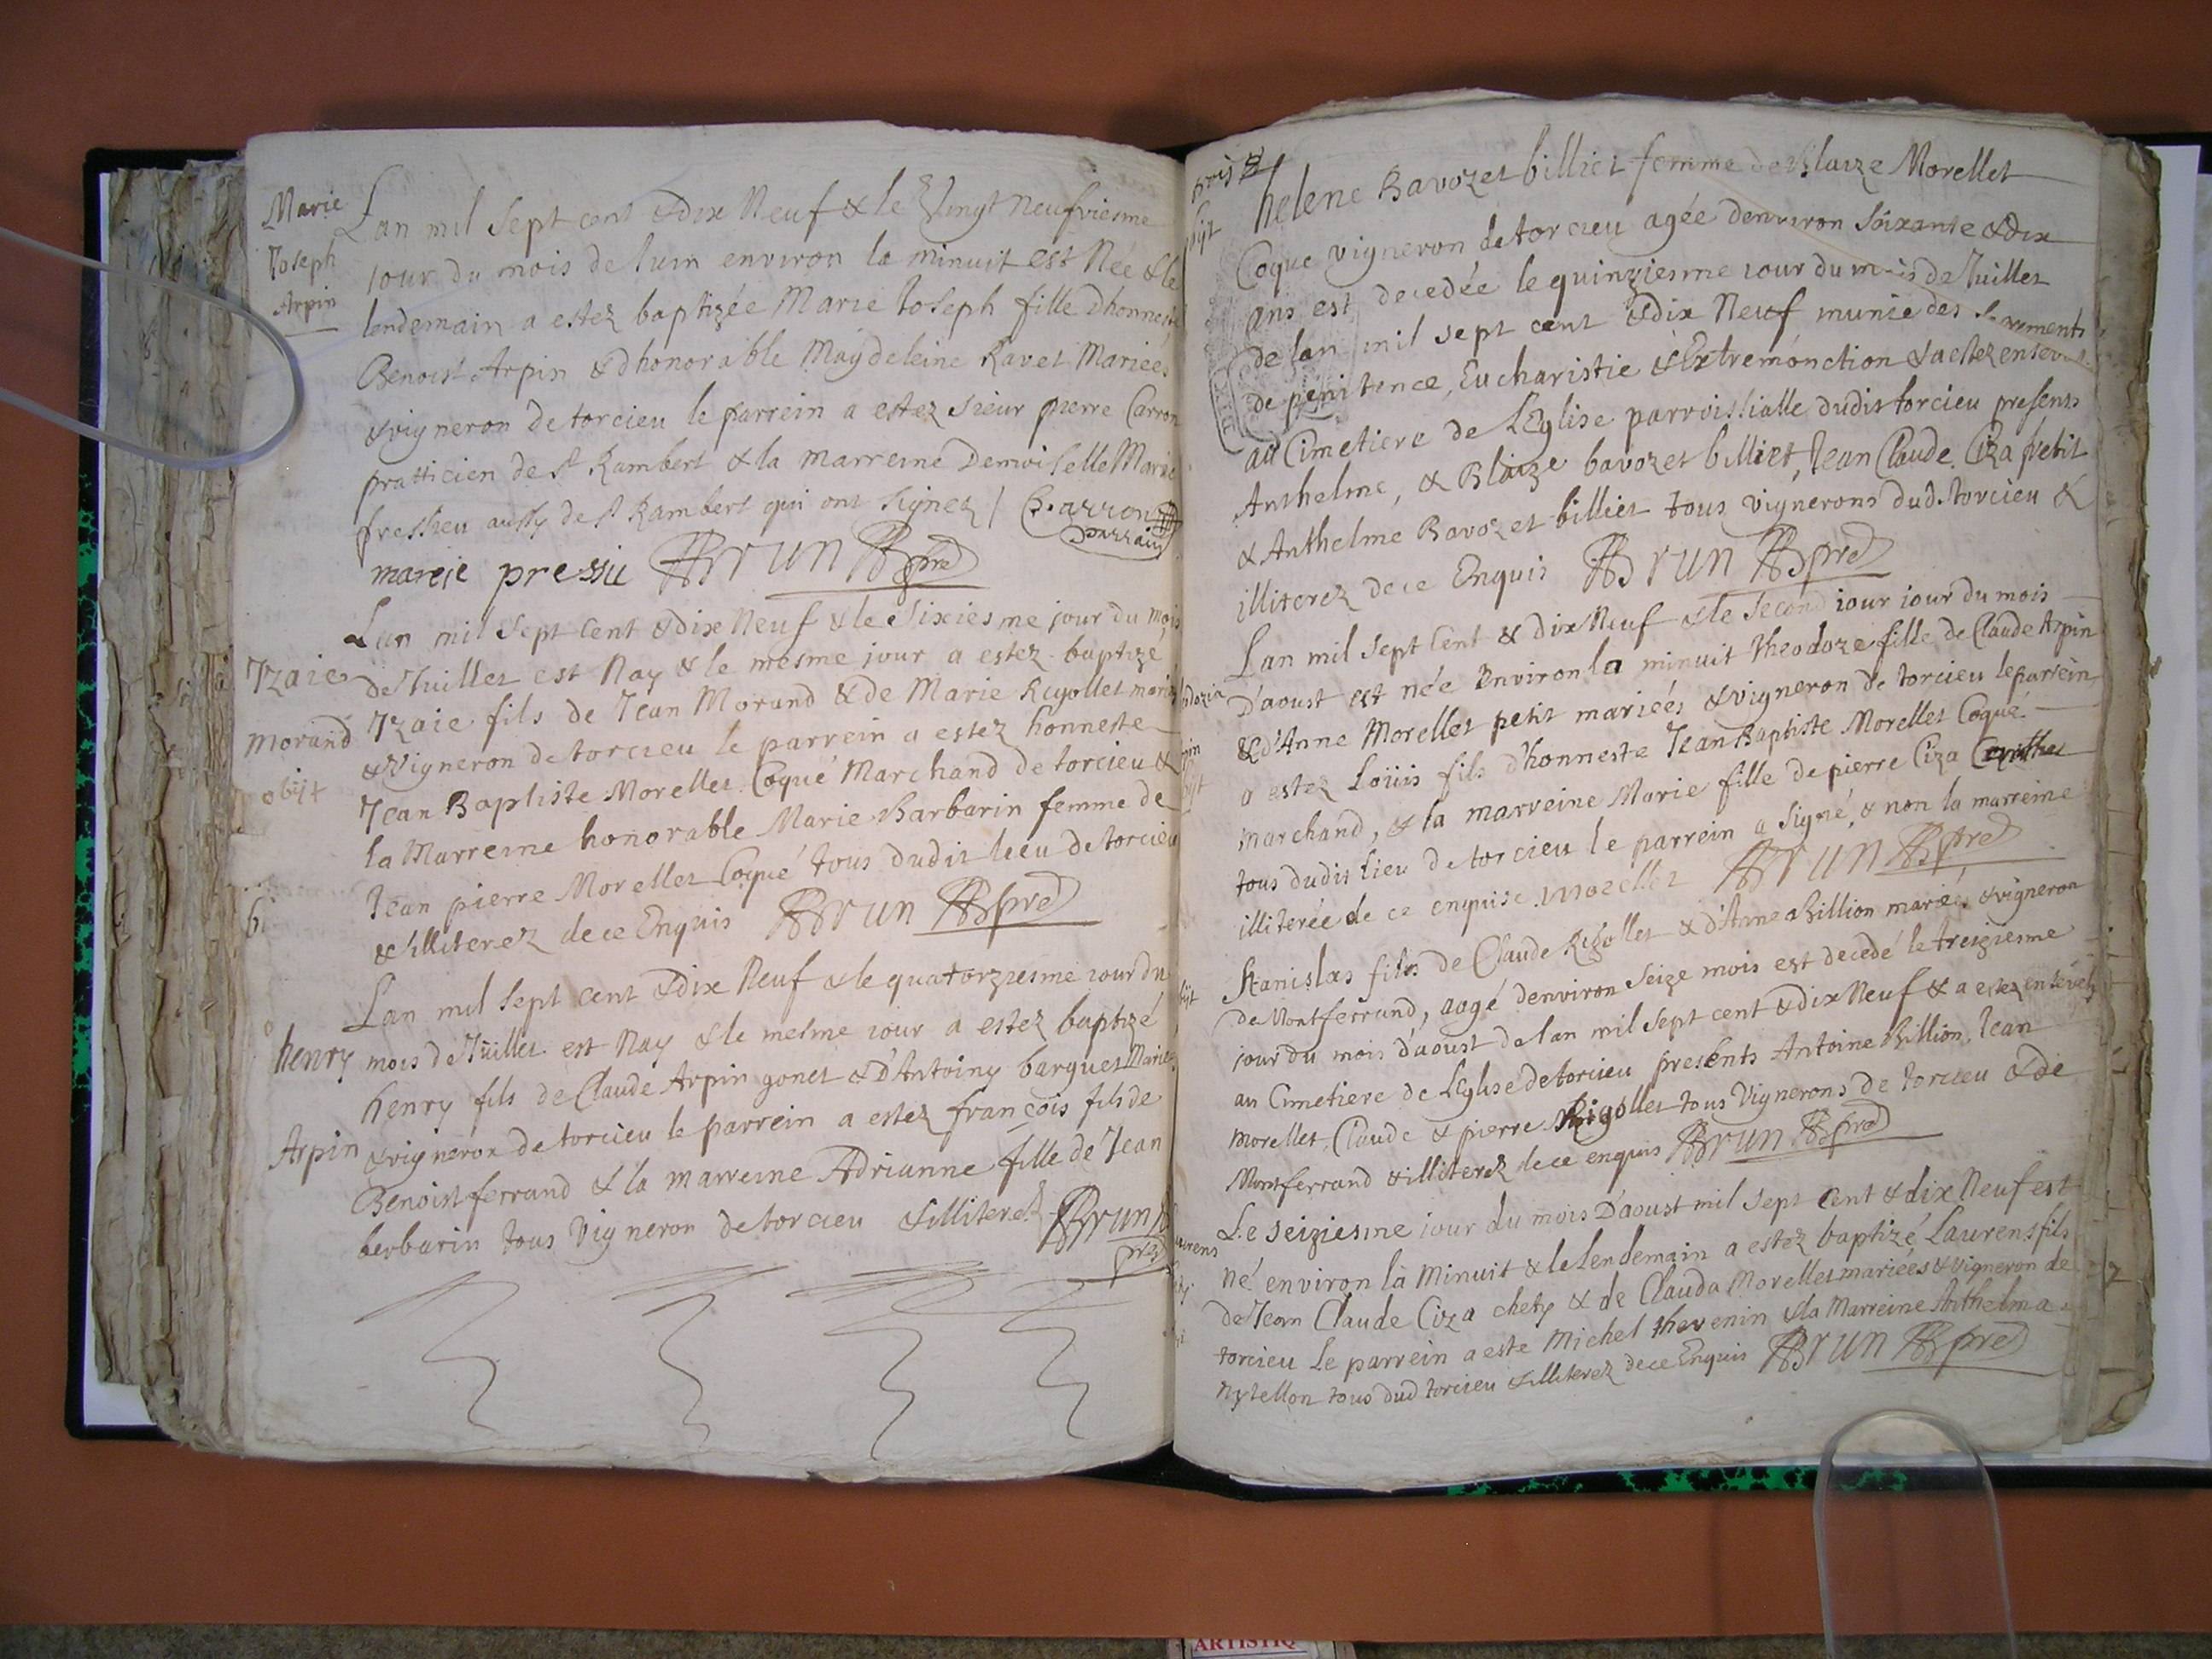 Marie
Joseph
Arpin
Lan mil sept cent & dix Neuf & le Vingt neufviesme
jour du mois de Juin environ la minuit est Née & le
lendemain a estez baptizée Marie Joseph fille d'honneste
Benoist Arpin & dhonorable Magdeleine Ravet Mariées
& vigneron de torcieu le parrein a estez sieur pierre Carron
pratticien de st Rambert & la marreine Demoiselle Marie
fressieu aussy de st Rambert qui ont signez / Carron
parrain
mareie pressiu Brun pre
Izaie
Morand
obijt
Lan mil sept cent & dix Neuf & le sixiesme jour du mois
de Juillet est Nay & le mesme jour a estez baptizé
Izaie fils de Jean Morand & de Marie Rigollet mariez
& Vigneron de torcieu le parrein a estez honneste
Jean Baptiste Morellet Coqué Marchand de torcieu &
la Marreine honorable Marie Barbarin femme de
Jean pierre Morellet Coqué tous dudit lieu de torcieu
& illiterez de ce Enquis Brun pre
henry
Arpin
Lan mil sept cent & dix Neuf & le quatorziesme jour du
mois de Juillet est Nay & le mesme jour a estez baptizé
henry fils de Claude Arpin gonet & D'Antoiny barquet Mariez
& vigneron de torcieu le parrein a estez françois fils de
Benoist ferrand & la marreine Adrianne fille de Jean
berbarin tous Vigneron de torcieu & illiterez Brun
pre
helene Bavozet billiet femme de Blaize Morellet
Coque vigneron de torcieu agée denviron soixante & dix
ans est decedée le quinziesme jour du mois de Juillet
de lan mil sept cent & dix Neuf munie des sacrements
de penitence, Eucharistie & Extremonction & a estez ensevely
au Cimetiere de LEglise parroissialle dudit torcieu presents
Anthelme, & Blaize bavozet billiet, Jean Claude Ciza petit
& Anthelme Bavozet billiet tous vignerons dud. torcieu &
illiterez de ce Enquis Brun pre
Lan mil sept Cent & dix Neuf & le second jour jour du mois
D'aoust est née Environ la minuit Theodoze fille de Claude Arpin
& d'Anne Morellet petit mariées & vigneron de torcieu le parrein
a estez Loüis fils d'honneste Jean Baptiste Morellet Coqué
marchand, & la marreine Marie fille de pierre Ciza
tous dudit lieu de torcieu le parrein a signé, & non la marreine
illiterée de ce enquise. Morellet Brun pre
Stanislas fils de Claude Rigollet & d'Anne Billion mariés & vigneron
de Montferrand, aagé denviron seize mois est decedé le treiziesme
jour du mois d'aoust de lan mil sept cent & dix Neuf & a estez ensevely
au Cimetiere de LEglise de torcieu presents Antoine Billion, Jean
Morellet, Claude & pierre Rigollet tous Vignerons de torcieu & de
Montferrand & illiterez de ce enquis Brun pre
Le seiziesme jour du mois D'aoust mil sept Cent & dix Neuf est
né environ la Minuit & le Lendemain a estez baptizé Laurens fils
de Jean Claude Ciza chety & de Clauda Morellet mariées & Vigneron de
torcieu le parrein a este Michel thevenin & la Marreine Anthelma
Nytellon tous dud torcieu & illiterez de ce Enquis Brun pre
ARTISTIQ